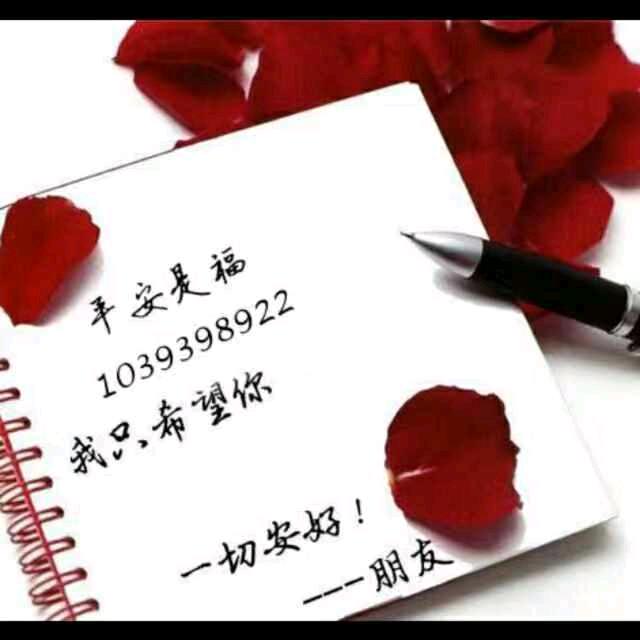 平安是福
1039398922
我只希望你
一切安好！
---朋友